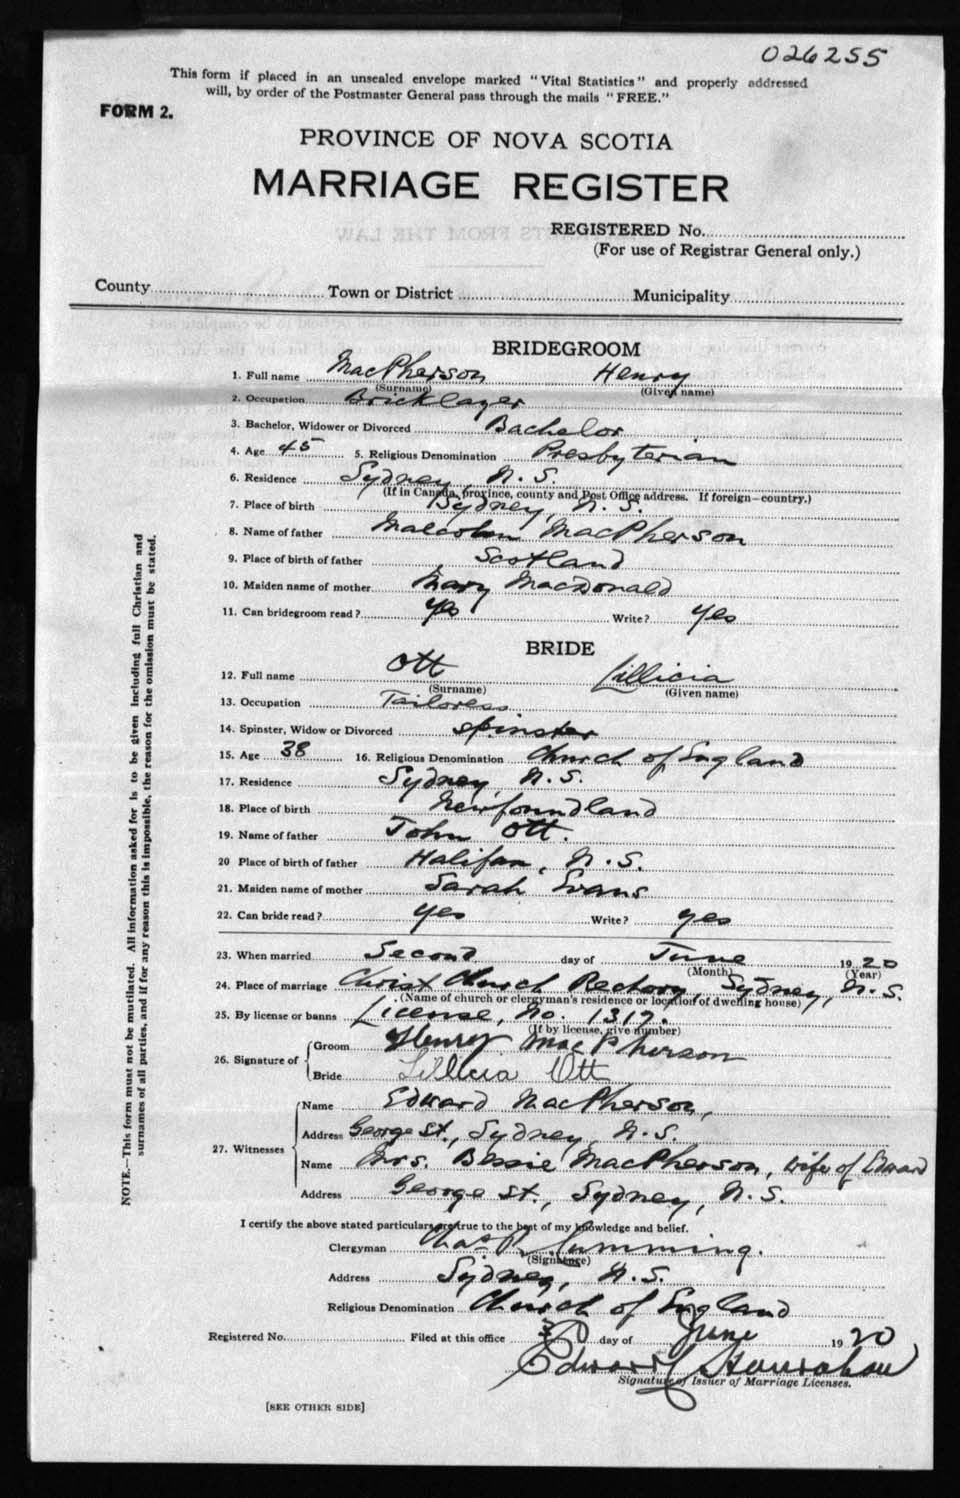 026255
This form if placed in an unsealed envelope marked "Vital Statistics" and properly addressed
will, by order of the Postmaster General pass through the mails "FREE."
FORM 2.
PROVINCE OF NOVA SCOTIA
MARRIAGE REGISTER
REGISTERED No.
(For use of Registrar General only.)
County Town or District Municipality
BRIDEGROOM
1. Full name MacPherson Henry
(Surname) (Given name)
2. Occupation Bricklayer
3. Bachelor, Widower or Divorced Bachelor
4. Age 45 5. Religious Denomination Presbyterian
6. Residence Sydney, N.S.
(If in Canada, province, county and Post Office address. If foreign—country.)
7. Place of birth Sydney, N.S.
8. Name of father Malcolm MacPherson
9. Place of birth of father Scotland
10. Maiden name of mother Mary MacDonald
11. Can bridegroom read? yes Write? yes
BRIDE
12. Full name Ott Lillicia
(Surname) (Given name)
13. Occupation Tailoress
14. Spinster, Widow or Divorced Spinster
15. Age 38 16. Religious Denomination Church of England
17. Residence Sydney, N.S.
18. Place of birth Newfoundland
19. Name of father John Ott.
20 Place of birth of father Halifax, N.S.
21. Maiden name of mother Sarah Evans
22. Can bride read? yes Write? yes
23. When married Second day of June 1920
(Month) (Year)
24. Place of marriage Christ Church Rectory, Sydney, N.S.
(Name of church or clergyman's residence or location of dwelling house)
25. By license or banns License, No. 1317.
(If by license, give number)
26. Signature of Groom Henry MacPherson
Bride Lillicia Ott
27. Witnesses Name Edward MacPherson,
Address George St., Sydney, N.S.
Name Mrs. Bessie MacPherson, wife of Edward
Address George St., Sydney, N.S.
I certify the above stated particulars are true to the best of my knowledge and belief.
Clergyman Chas R. Cumming.
(Signature)
Address Sydney, N.S.
Religious Denomination Church of England
Registered No. Filed at this office day of June 1920
Edward
Signature of Issuer of Marriage Licenses.
[SEE OTHER SIDE]
NOTE.—This form must not be mutilated. All information asked for is to be given including full Christian and
surnames of all parties, and if for any reason this is impossible, the reason for the omission must be stated.